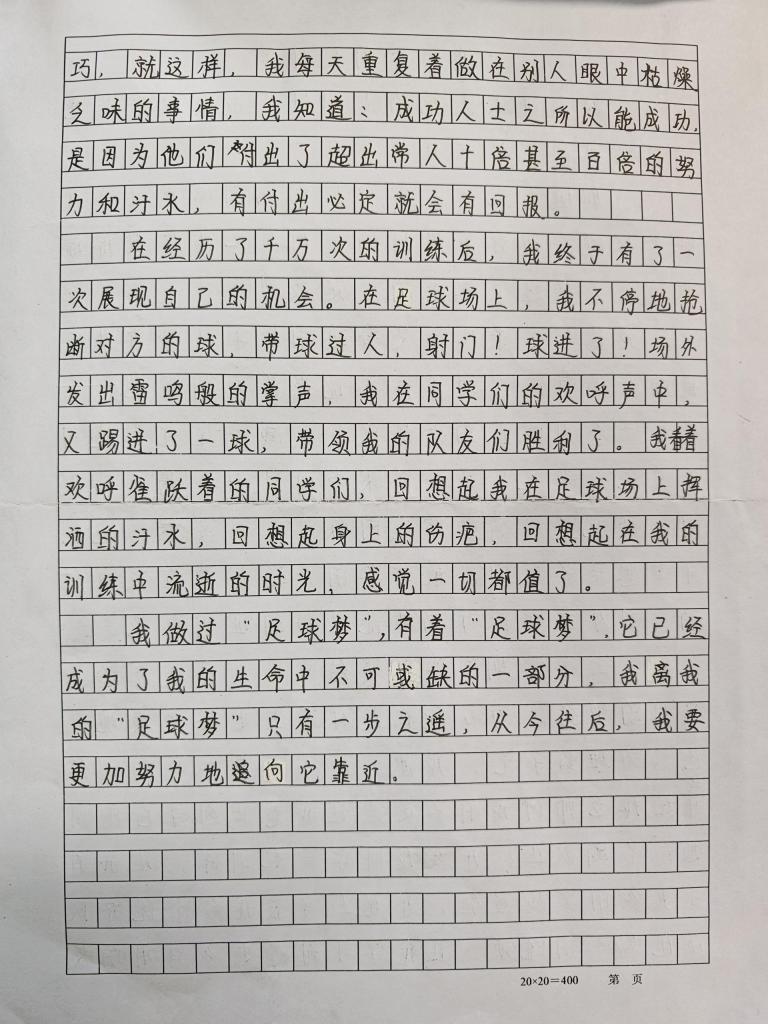 巧，就这样，我每天重复着做在别人眼中枯燥
乏味的事情，我知道：成功人士之所以能成功，
是因为他们付出了超出常人十倍甚至百倍的努
力和汗水，有付出必定就会有回报。
在经历了千万次的训练后，我终于有了一
次展现自己的机会。在足球场上，我不停地抢
断对方的球，带球过人，射门！球进了！场外
发出雷鸣般的掌声，我在同学们的欢呼声中，
又踢进了一球，带领我的队友们胜利了。我看着
欢呼雀跃着的同学们，回想起我在足球场上挥
洒的汗水，回想起身上的伤疤，回想起在我的
训练中流逝的时光，感觉一切都值了。
我做过“足球梦”，有着“足球梦”，它已经
成为了我的生命中不可或缺的一部分，我离我
的“足球梦”只有一步之遥，从今往后，我要
更加努力地向它靠近。
20×20=400 第 页